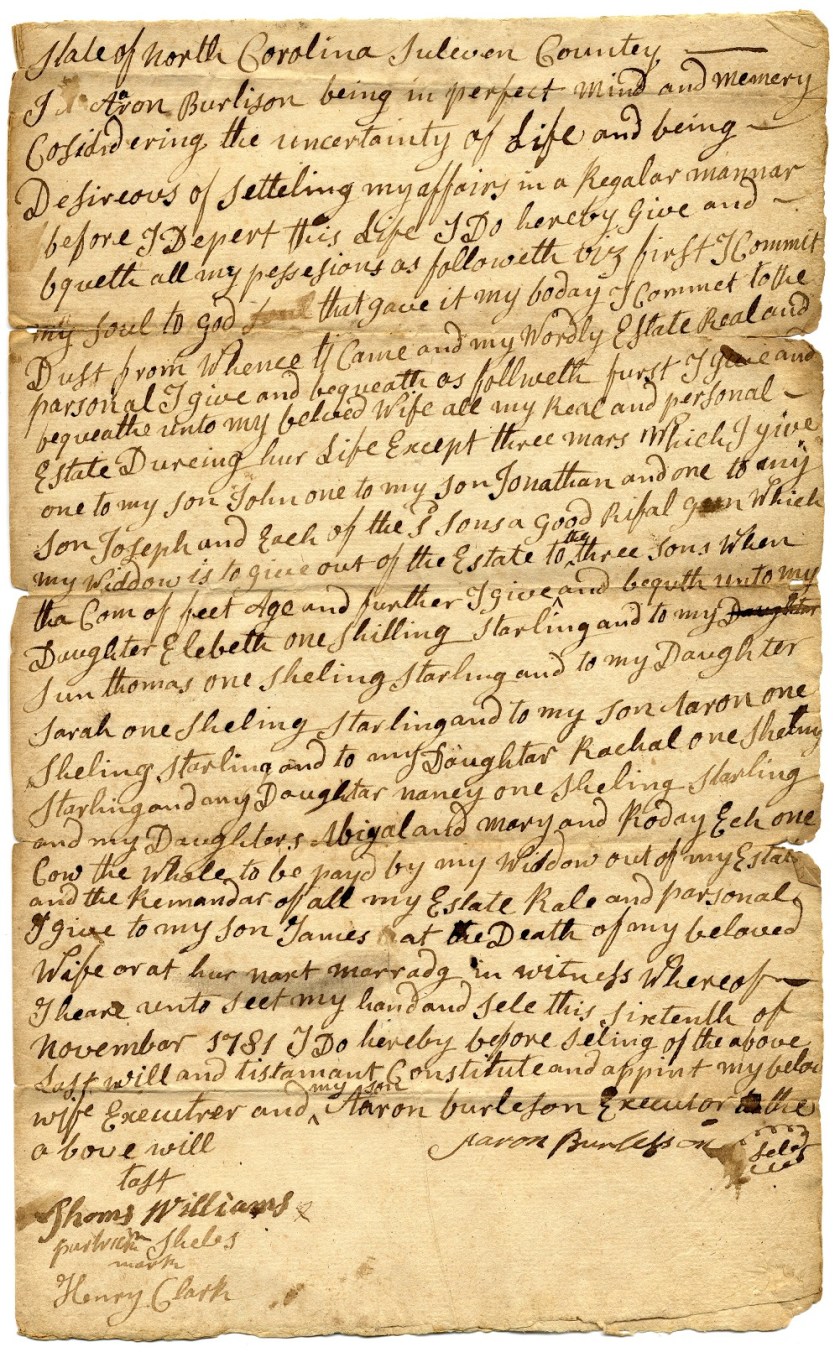 State of North Carolina Suleven Countey
I Aaron Burlison being in perfect mind and memery
Cosiddering the uncertainty of Life and being
Desireous of setteling my affairs in a Regalar mannar
before I Depert this Life I Do hereby Give and
bqueth all my pessesions as followeth viz first I Commit
my soul to god that gave it my boday I Commet to the
Dust from Whence it Came and my Wordly Estate Real and
parsonal I give and bequeath as follweth furst I give and
bequeathe unto my beloved Wife all my Real and personal
Estate Dureing hur Life Except three mars Which I give
one to my son John one to my son Jonathan and one to my
son Joseph and Each of the sd sons a good Rifal gun Which
my Widdow is to give out of the Estate to the three sons When
tha Com of feet Age and further I give and bequth unto my
Daughter Elebeth one shilling starling and to my Daughter
sun thomas one sheling starling and to my Daughter
sarah one sheling starling and to my son Aaron one
sheling starling and to my Daughtar Rachal one sheling
starling and my Daughtar nancy one sheling starling
and my Daughters Abigal and mary and Roday Ech one
Cow the whole to be payd by my Widdow out of my Estate
and the Remandar of all my Estate Rale and parsonal
I give to my son James at the Death of my beloved
Wife or at hur naxt marradg in witness Whereof
I heare unto seet my hand and sele this sixtenth of
November 1781 I Do hereby before seling of the above
Last will and tistamant Constitute and appint my belov
wife Executrer and my son Aaron burleson Executor to the
above will
Aaron Burlesson sele
tast
Thoms Williams
Sheles
mark
Henry Clark